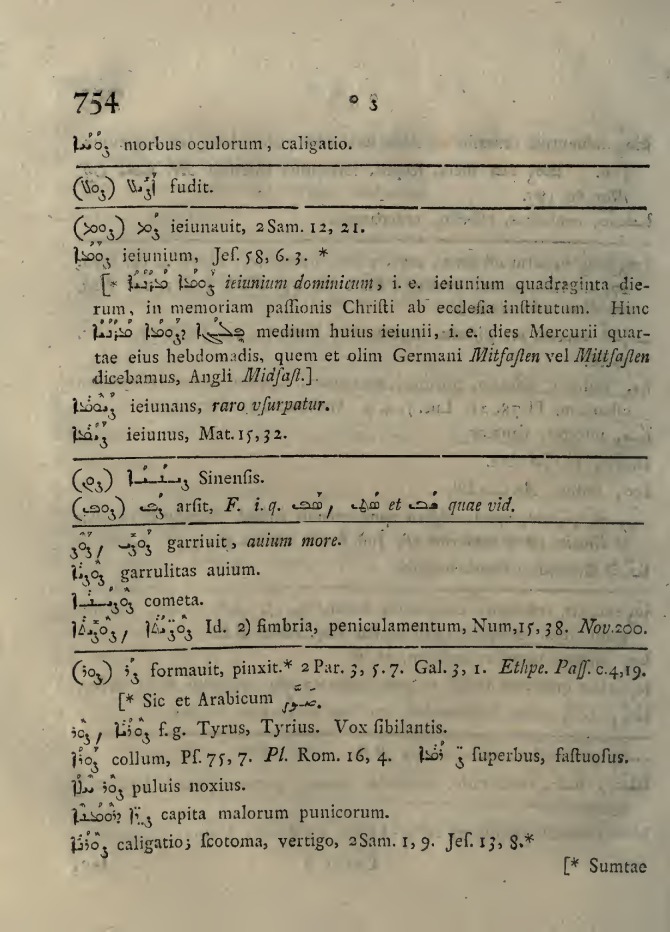 754 ܨ ܘ
morbus oculorum, caligatio.
fudit.
(ܨܘܡ) ܨܡ ieiunauit, 2 Sam. 12, 21.
ܨܘܡܐ ieiunium, Jeſ. 58, 6. 3. *
[* ieiunium dominicum, i. e. ieiunium quadraginta die-
rum, in memoriam paſſionis Chriſti ab eccleſia inſtitutum. Hinc
medium huius ieiunii, i. e. dies Mercurii quar-
tae eius hebdomadis, quem et olim Germani Mitfaſten vel Mittfaſten
dicebamus, Angli Midfaſt.].
ieiunans, raro vſurpatur.
ieiunus, Mat. 15, 32.
Sinenſis.
arſit, F. i. q. et quae vid.
garriuit, auium more.
garrulitas auium.
cometa.
Id. 2) fimbria, peniculamentum, Num, 15, 38. Nov. 200.
(ܨܘܪ) ܨܪ formauit, pinxit.* 2 Par. 3, 5. 7. Gal. 3, 1. Ethpe. Paſſ. c. 4, 19.
[* Sic et Arabicum صور.
f. g. Tyrus, Tyrius. Vox ſibilantis.
ܨܘܪܐ collum, Pſ. 75, 7. Pl. Rom. 16, 4. ſuperbus, faſtuoſus.
puluis noxius.
capita malorum punicorum.
caligatio; ſcotoma, vertigo, 2 Sam. 1, 9. Jeſ. 13, 8.*
[* Sumtae